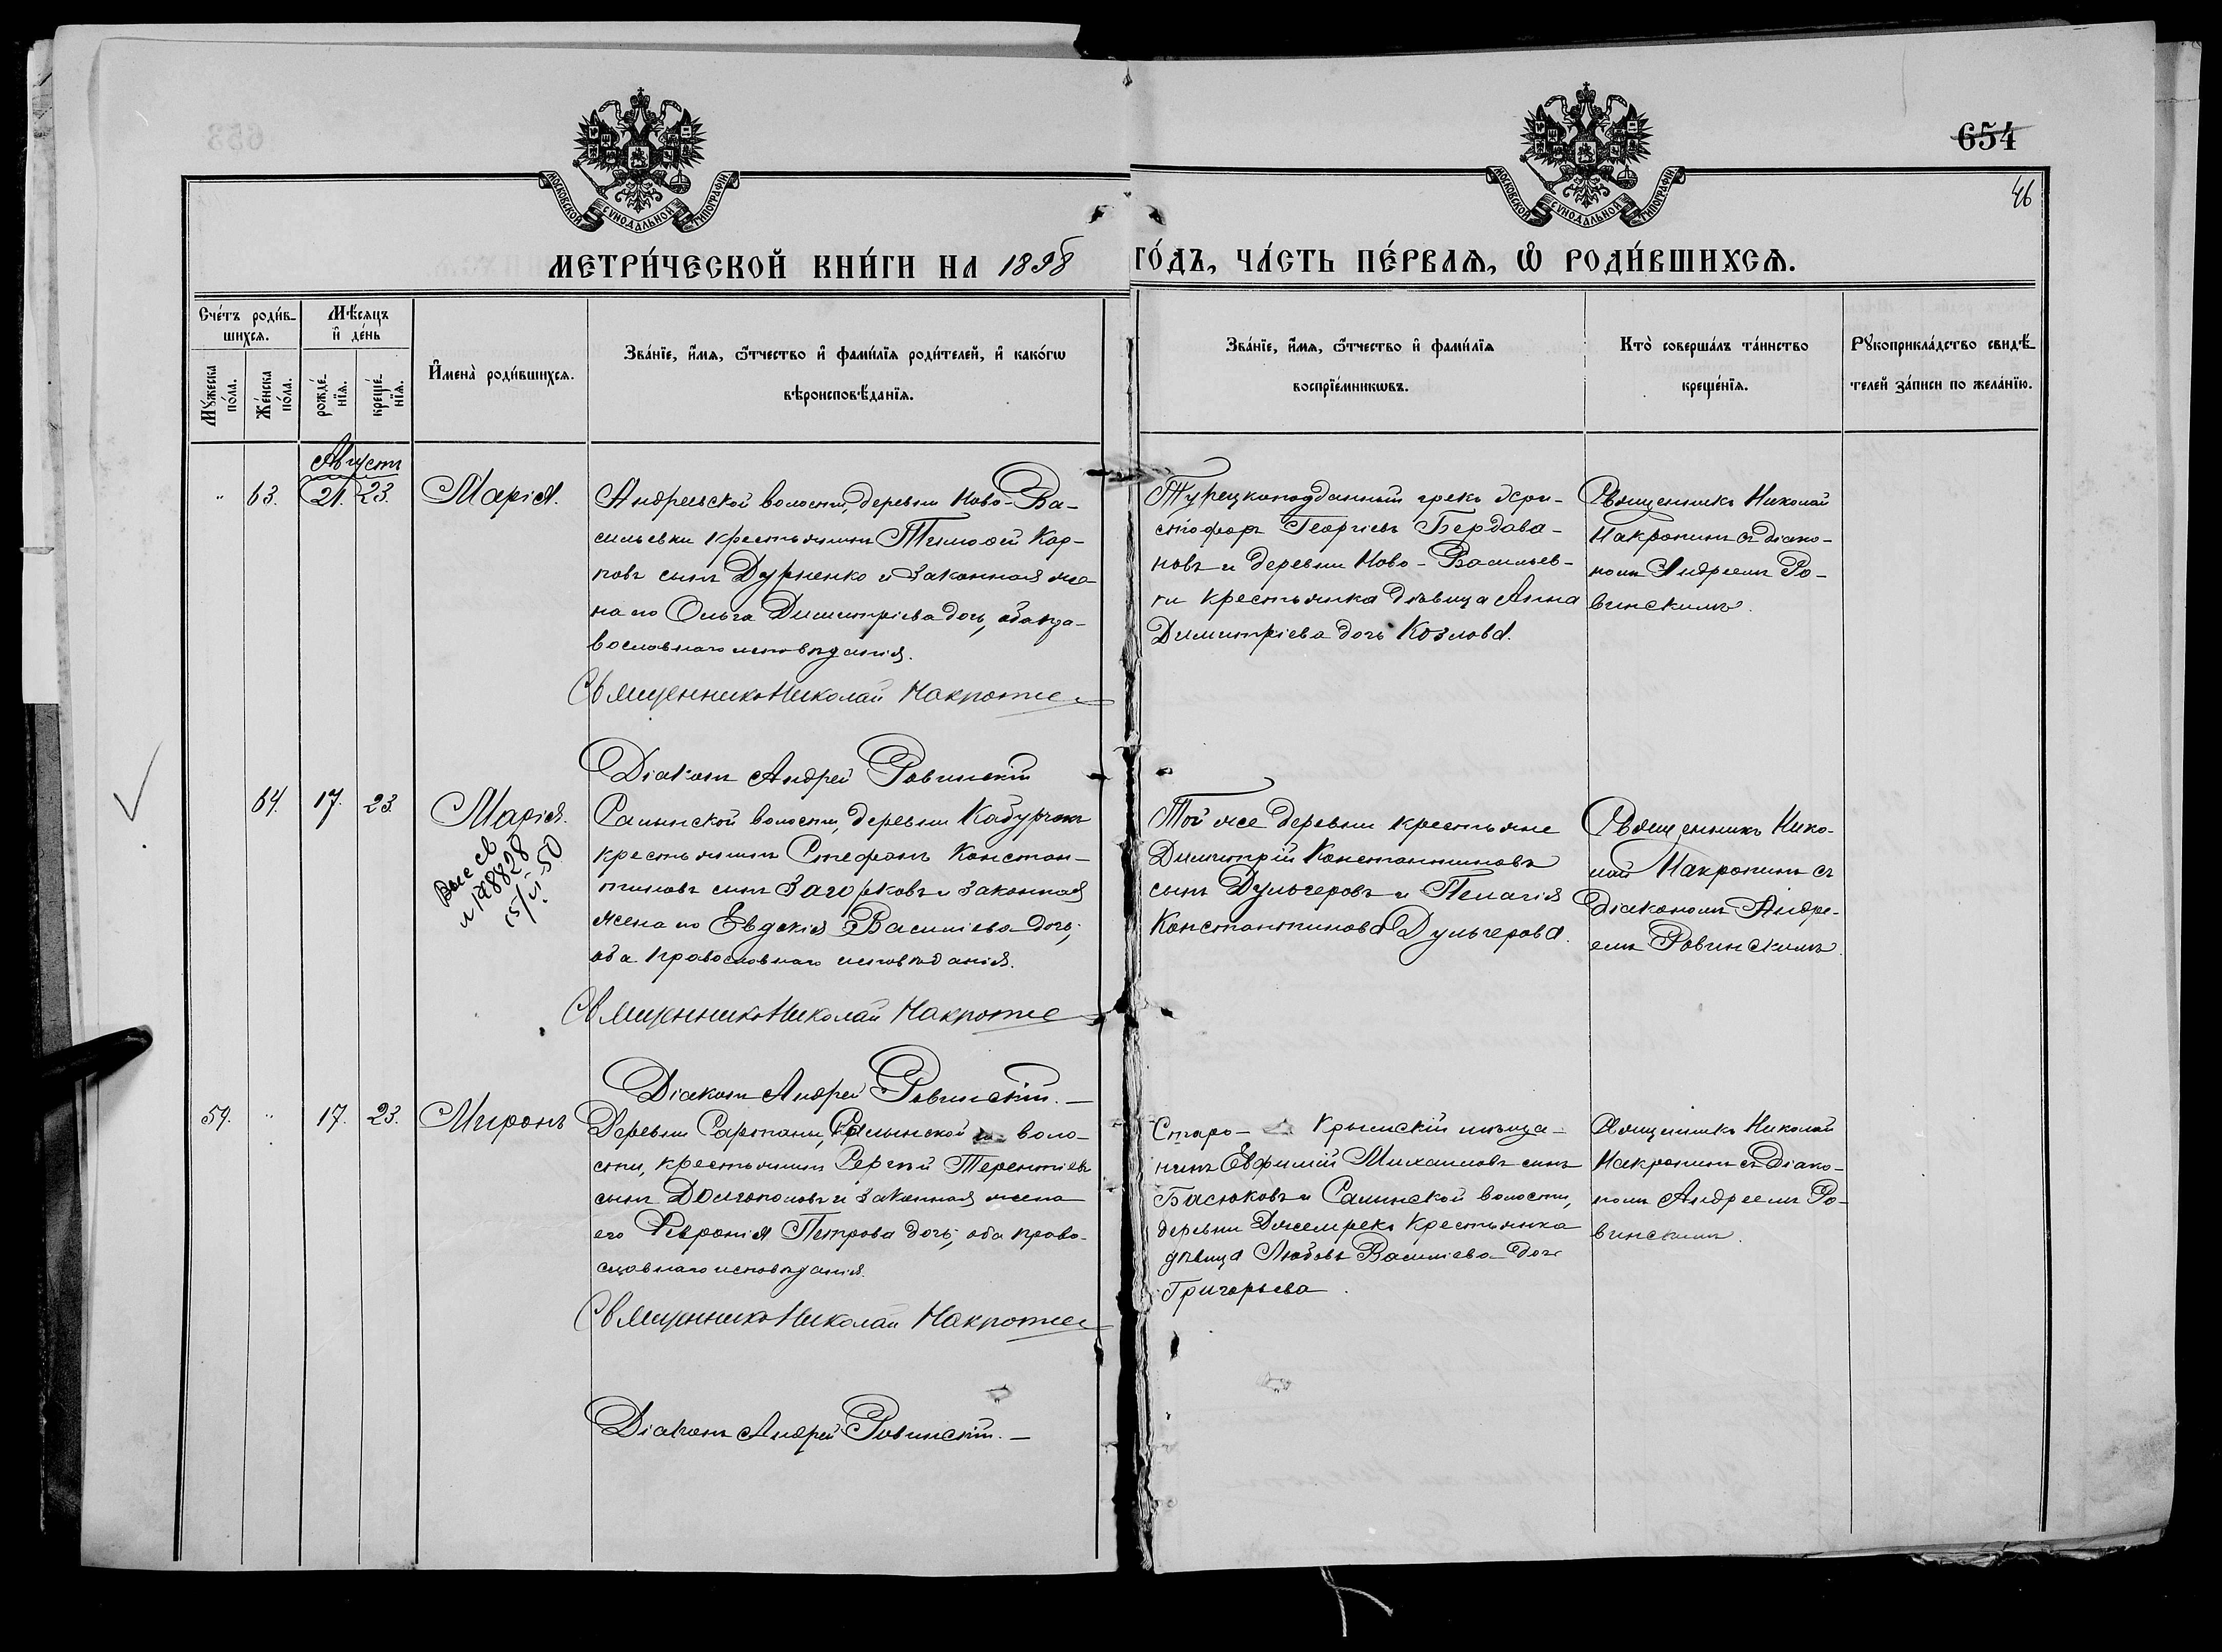 654
46
МОСКОВСКОЙ СѴНОДАЛЬНОЙ ТИПОГРАФІИ
МОСКОВСКОЙ СѴНОДАЛЬНОЙ ТИПОГРАФІИ
МЕТРИ́ЧЕСКОЙ КНИ́ГИ НА 1898 ГО́ДЪ, ЧА́СТЬ ПЕ́РВАѦ, Ѡ҆ РОДИ́ВШИХСѦ.
Сче́тъ роди́в-
шихсѧ.
Мꙋ́жеска по́ла.
Же́нска по́ла.
Мѣ́сѧцъ
и҆ де́нь
рожде́-
нїѧ.
креще́-
нїѧ.
И҆мена̀ роди́вшихсѧ.
Зва́нїе, и҆́мѧ, ѻ҆́тчество и҆ фами́лїѧ роди́телей, и҆ како́гѡ
вѣроисповѣ́данїѧ.
Зва́нїе, и҆́мѧ, ѻ҆́тчество и҆ фами́лїѧ
воспрїе́мникѡвъ.
Кто̀ соверша́лъ та́инство
креще́нїѧ.
Рꙋкоприкла́дство свидѣ́-
телей за́писи по жела́нїю.
Августъ
" 63. 21. 23. Марія.
Андреевской волости, деревни Ново-Ва-
сильевки крестьянинъ Тимоѳей Кар-
повъ сынъ Дурненко и законная же-
на его Ольга Димитріева дочь, оба пра-
вославнаго исповѣданія.
Священникъ Николай Макропи
Діаконъ Андрей Ровинскій
Турецкоподданный грекъ Хри-
стофоръ Георгіевъ Бердова-
новъ и деревни Ново-Васильев-
ки крестьянка дѣвица Анна
Димитріева дочь Козлова.
Священникъ Николай
Макропинъ съ діако-
номъ Андреемъ Ро-
винскимъ.
64. 17. 23. Марія.
Выс св
18828
15/VI-50
волости, деревни
крестьянинъ Стефанъ Констан-
тиновъ сынъ Загорковъ и законная
жена его Евдокія Василіева дочь;
оба православнаго исповѣданія.
Священникъ Николай Макропи
Діаконъ Андрей Ровинскій.
Той же деревни крестьяне
Димитрій Константиновъ
сынъ Дульгеровъ и Пелагія
Константинова Дульгерова.
Священникъ Нико-
лай Макропинъ съ
діакономъ Андре-
емъ Ровинскимъ.
59. " 17. 23. Миронъ
Деревни Сартаны, воло-
сти, крестьянинъ Сергѣй Терентіевъ
сынъ Долгополовъ и законная жена
его Февронія Петрова дочь; оба право-
славнаго исповѣданія.
Священникъ Николай Макропи
Діаконъ Андрей Ровинскій.
Старо- Крымскій мѣща-
нинъ Евфимій Михаиловъ сынъ
Басюковъ и волости,
деревни крестьянка
дѣвица Любовь Василіева дочь
Григорьева.
Священникъ Николай
Макропинъ съ діако-
номъ Андреемъ Ро-
винскимъ.